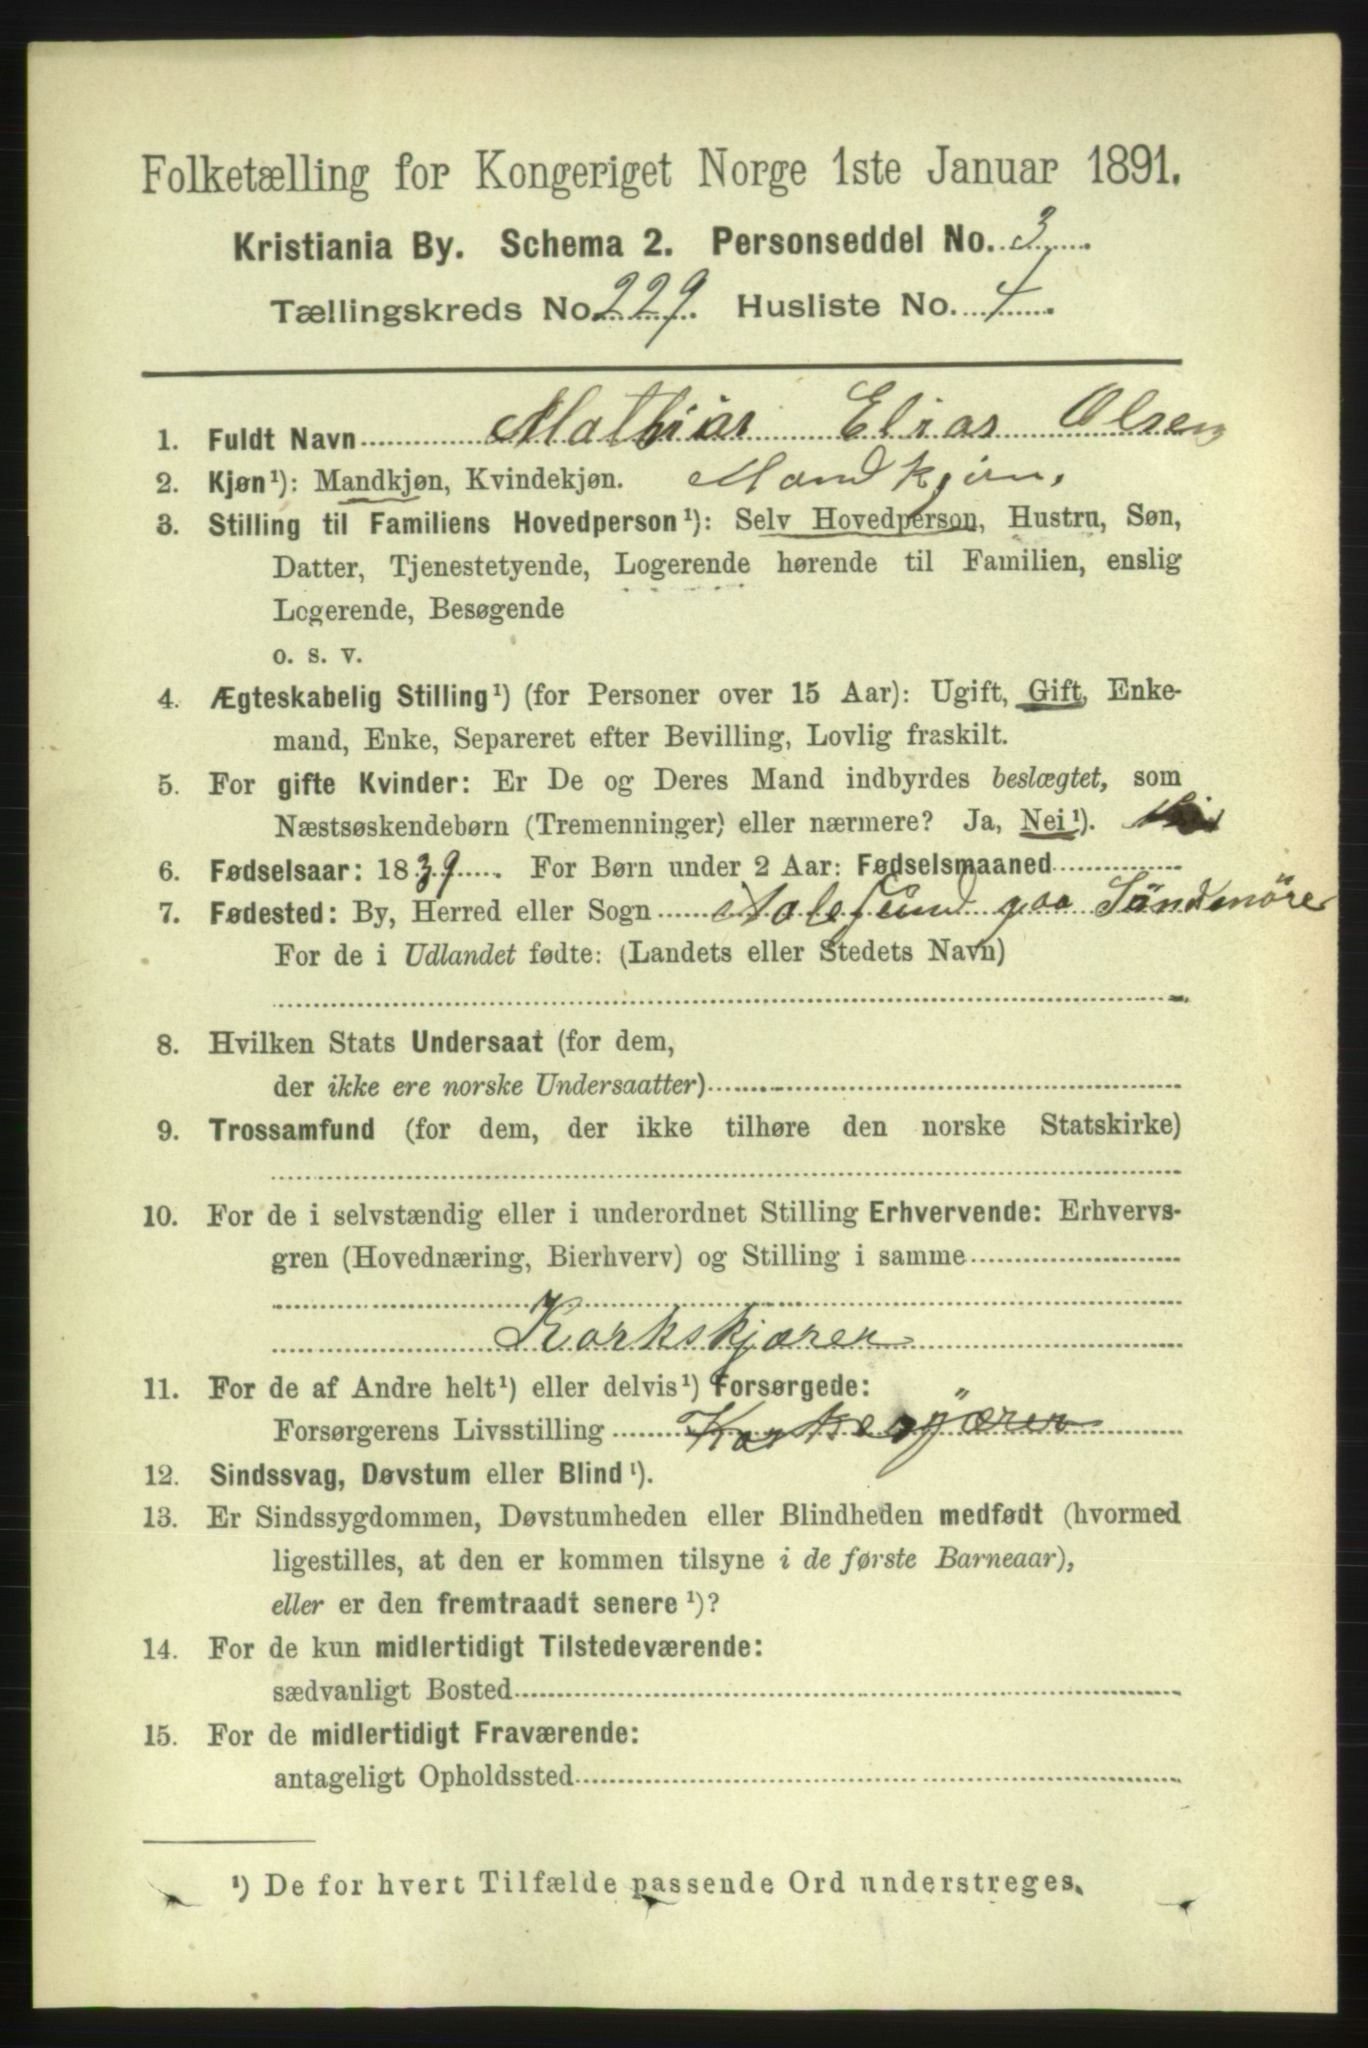 Folketælling for Kongeriget Norge 1ste Januar 1891.
Kristiania By. Schema 2. Personseddel No. 3
Tællingskreds No. 229. Husliste No. 4
1. Fuldt Navn Mathias Elias Olsen
2. Kjøn¹): Mandkjøn, Kvindekjøn. Mandkjøn.
3. Stilling til Familiens Hovedperson¹): Selv Hovedperson, Hustru, Søn,
Datter, Tjenestetyende, Logerende hørende til Familien, enslig
Logerende, Besøgende
o. s. v.
4. Ægteskabelig Stilling¹) (for Personer over 15 Aar): Ugift, Gift, Enke-
mand, Enke, Separeret efter Bevilling, Lovlig fraskilt.
5. For gifte Kvinder: Er De og Deres Mand indbyrdes beslægtet, som
Næstsøskendebørn (Tremenninger) eller nærmere? Ja, Nei¹).
6. Fødselsaar: 1839. For Børn under 2 Aar: Fødselsmaaned
7. Fødested: By, Herred eller Sogn Aalesund paa Søndmöre
For de i Udlandet fødte: (Landets eller Stedets Navn)
8. Hvilken Stats Undersaat (for dem,
der ikke ere norske Undersaatter)
9. Trossamfund (for dem, der ikke tilhøre den norske Statskirke)
10. For de i selvstændig eller i underordnet Stilling Erhvervende: Erhvervs-
gren (Hovednæring, Bierhverv) og Stilling i samme
Korkskjærer
11. For de af Andre helt¹) eller delvis¹) Forsørgede:
Forsørgerens Livsstilling
12. Sindssvag, Døvstum eller Blind¹).
13. Er Sindssygdommen, Døvstumheden eller Blindheden medfødt (hvormed
ligestilles, at den er kommen tilsyne i de første Barneaar),
eller er den fremtraadt senere¹)?
14. For de kun midlertidigt Tilstedeværende:
sædvanligt Bosted
15. For de midlertidigt Fraværende:
antageligt Opholdssted
¹) De for hvert Tilfælde passende Ord understreges.